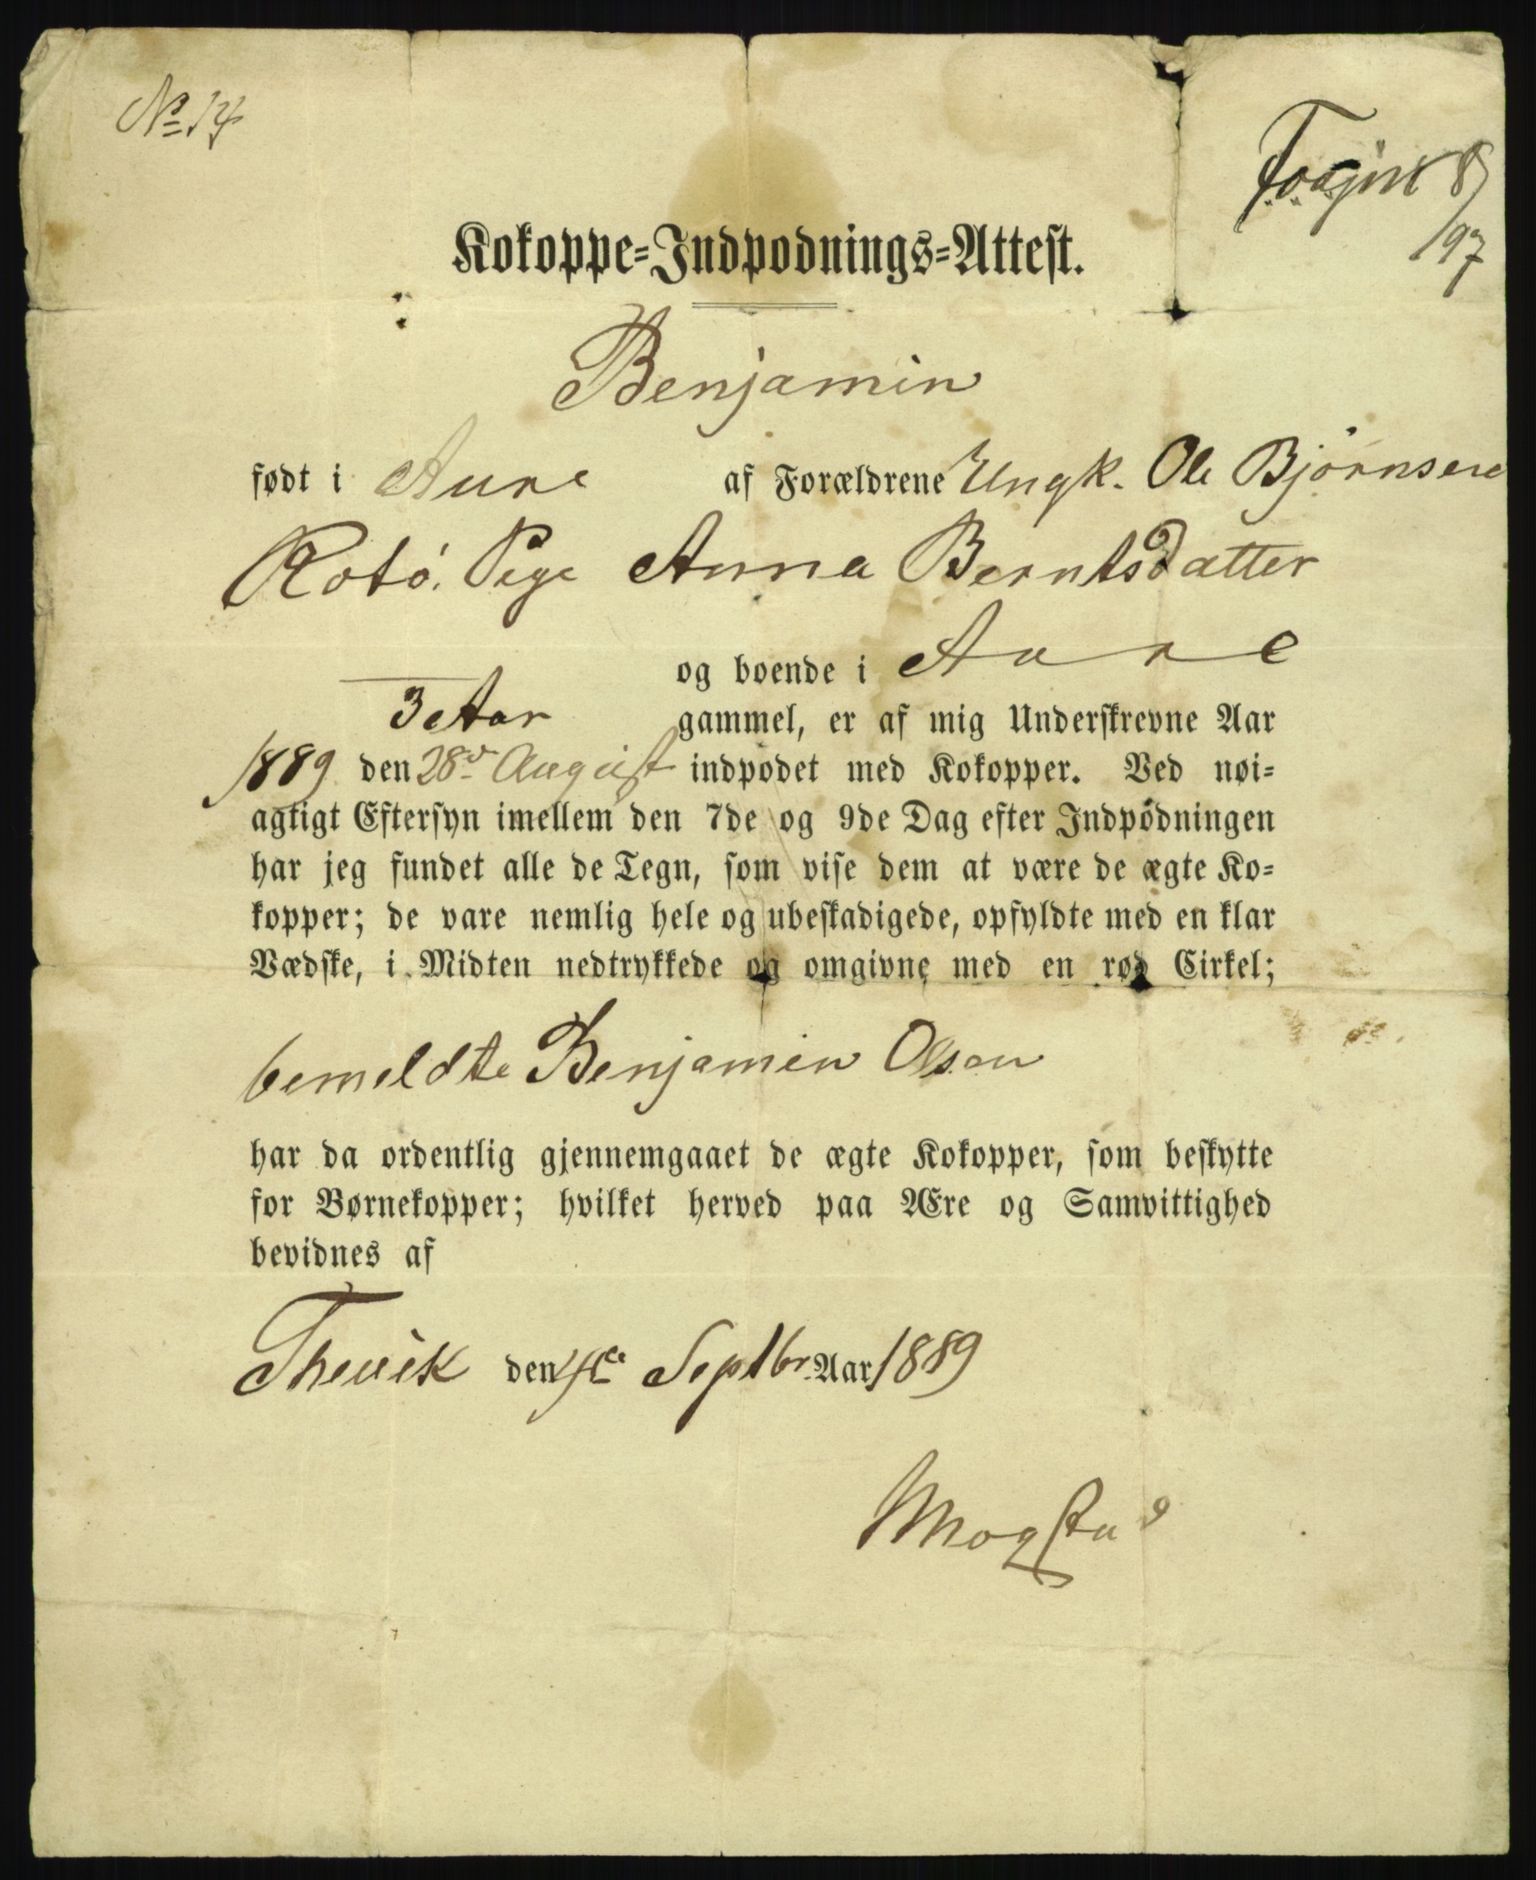 No 14
8/97
Kokoppe-Indpodnings-Attest.
Benjamin
født i Aure af Forældrene Ungk. Ole Bjørnsen
Rotø. Pige Anna Berntsdatter
og boende i Aure
3 Aar gammel, er af mig Underskrevne Aar
1889 den 28de August indpodet med Kokopper. Ved nøi-
agtigt Eftersyn imellem den 7de og 9de Dag efter Indpødningen
har jeg fundet alle de Tegn, som vise dem at være de ægte Ko-
kopper; de vare nemlig hele og ubeskadigede, opfyldte med en klar
Vædske, i Midten nedtrykkede og omgivne med en rød Cirkel;
bemeldte Benjamin Olsen
har da ordentlig gjennemgaaet de ægte Kokopper, som beskytte
for Børnekopper; hvilket herved paa Ære og Samvittighed
bevidnes af
Thevik den 4de Septbr Aar 1889
Mogstad